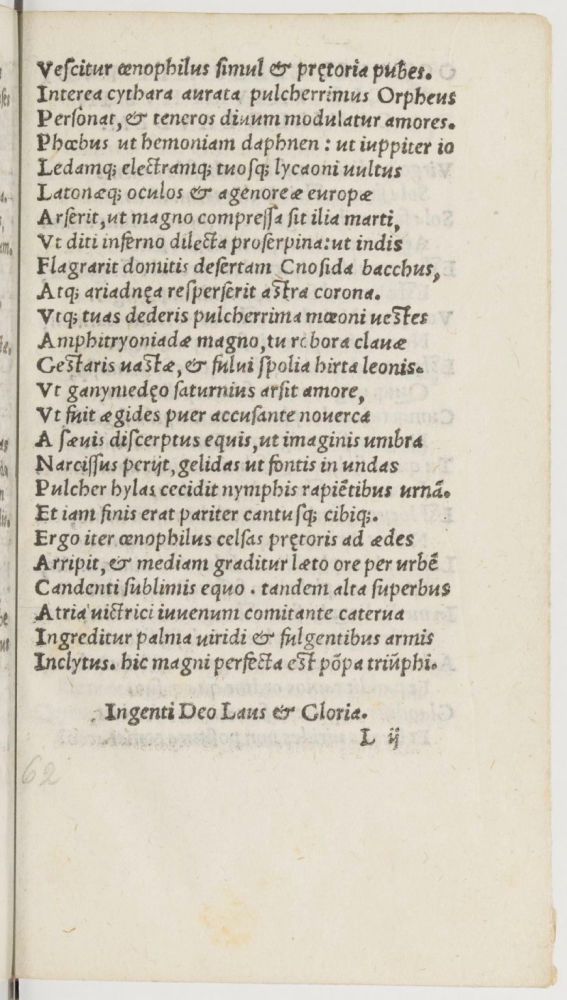 Veſcitur œnophilus ſimul & prętoria pubes.
Interea cythara aurata pulcherrimus Orpheus
Perſonat, & teneros diuum modulatur amores.
Phœbus ut hemoniam daphnen : ut iuppiter io
Ledamq; electramq; tuoſq; lycaoni uultus
Latonæq; oculos & agenoreæ europæ
Arſerit, ut magno compreſſa ſit ilia marti,
Vt diti inferno dilecta proſerpina: ut indis
Flagrarit domitis deſertam Cnoſida bacchus,
Atq; ariadnęa reſperſerit aſtra corona.
Vtq; tuas dederis pulcherrima mœoni ueſtes
Amphitryoniadæ magno, tu robora clauæ
Geſtaris uaſtæ, & fului ſpolia hirta leonis.
Vt ganymedęo ſaturnius arſit amore,
Vt fuit ægides puer accuſante nouerca
A ſæuis diſcerptus equis, ut imaginis umbra
Narciſſus perijt, gelidas ut fontis in undas
Pulcher hylas cecidit nymphis rapiētibus urnā.
Et iam finis erat pariter cantuſq; cibiq;.
Ergo iter œnophilus celſas prętoris ad ædes
Arripit, & mediam graditur læto ore per urbē
Candenti ſublimis equo . tandem alta ſuperbus
Atria uictrici iuuenum comitante caterua
Ingreditur palma uiridi & fulgentibus armis
Inclytus. hic magni perfecta eſt pōpa triūphi.
Ingenti Deo Laus & Gloria.
L ij
62